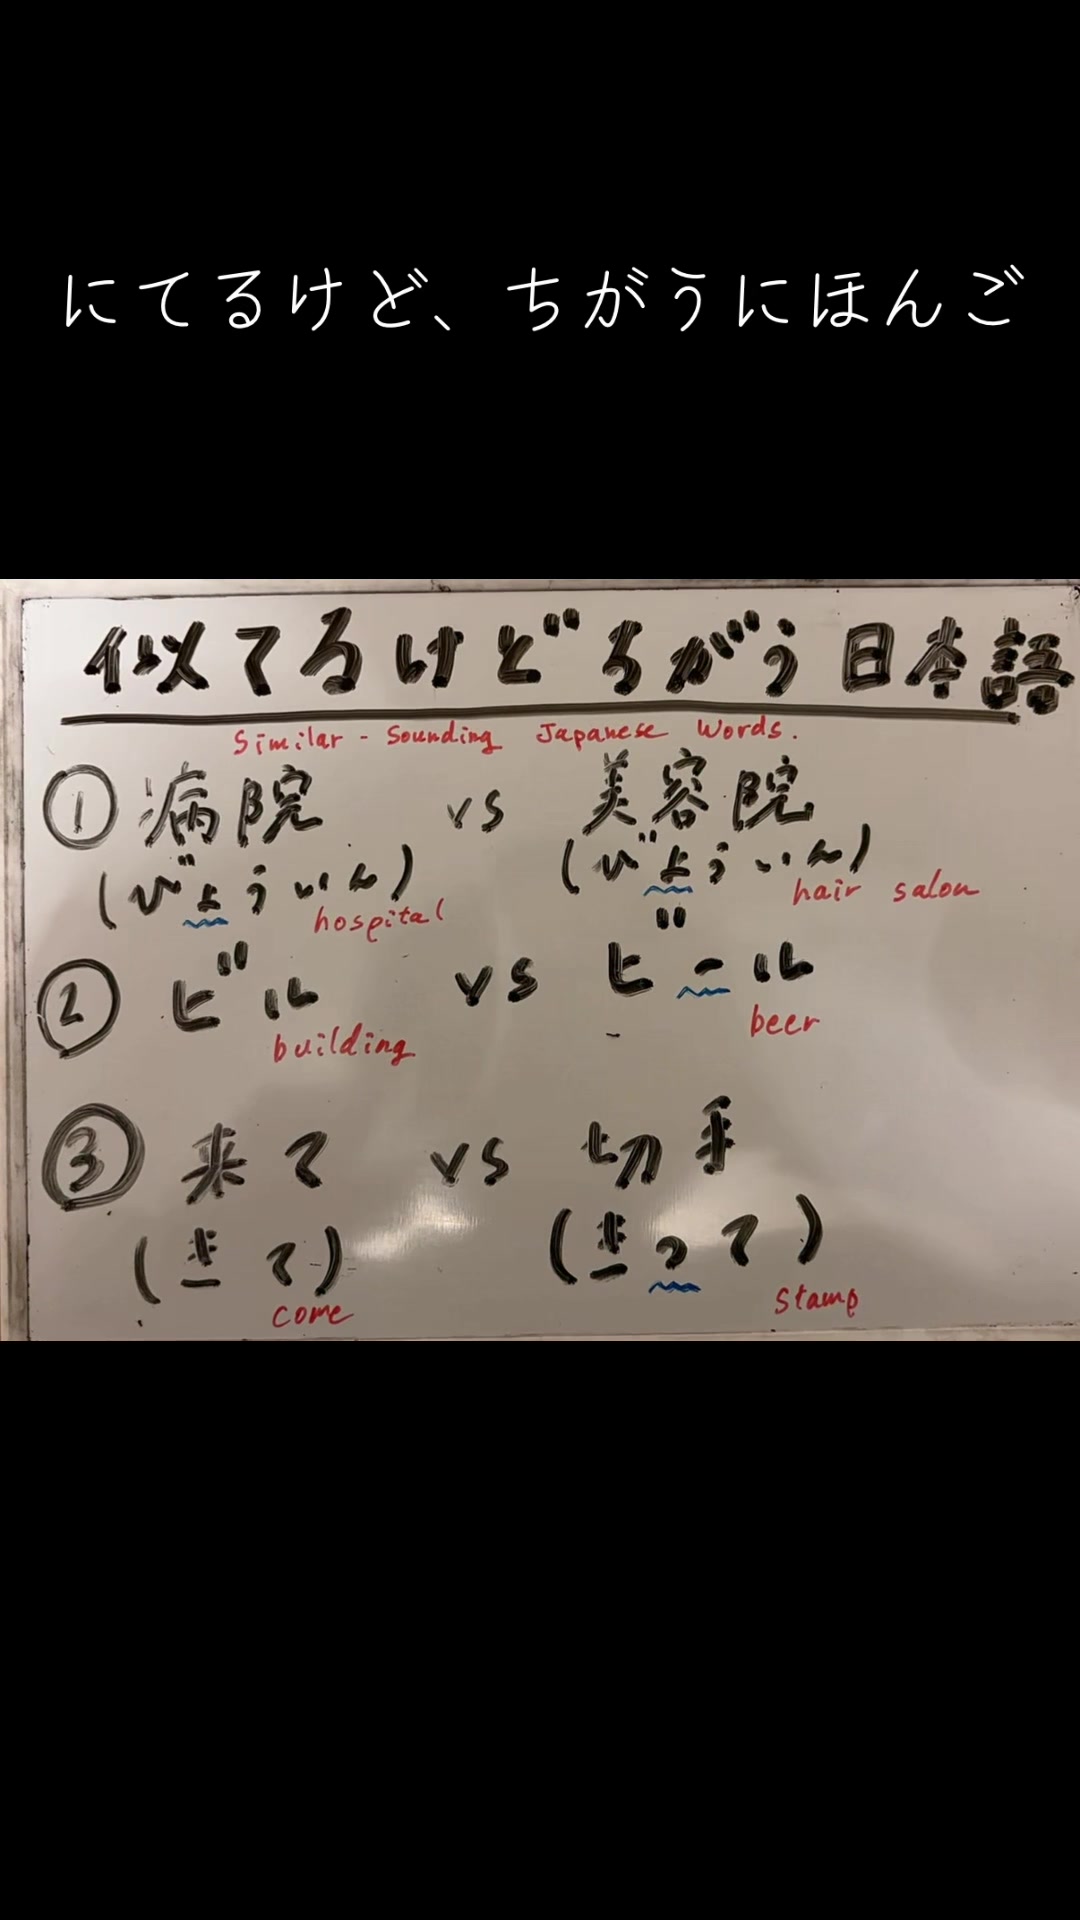 にてるけど、ちがうにほんご
似てるけどちがう日本語
Similar-Sounding Japanese Words.
① 病院 vs 美容院
(びょういん) hospital (びよういん) hair salon
② ビル vs ビール
building beer
③ 来て vs 切手
(きて) (きって)
come stamp